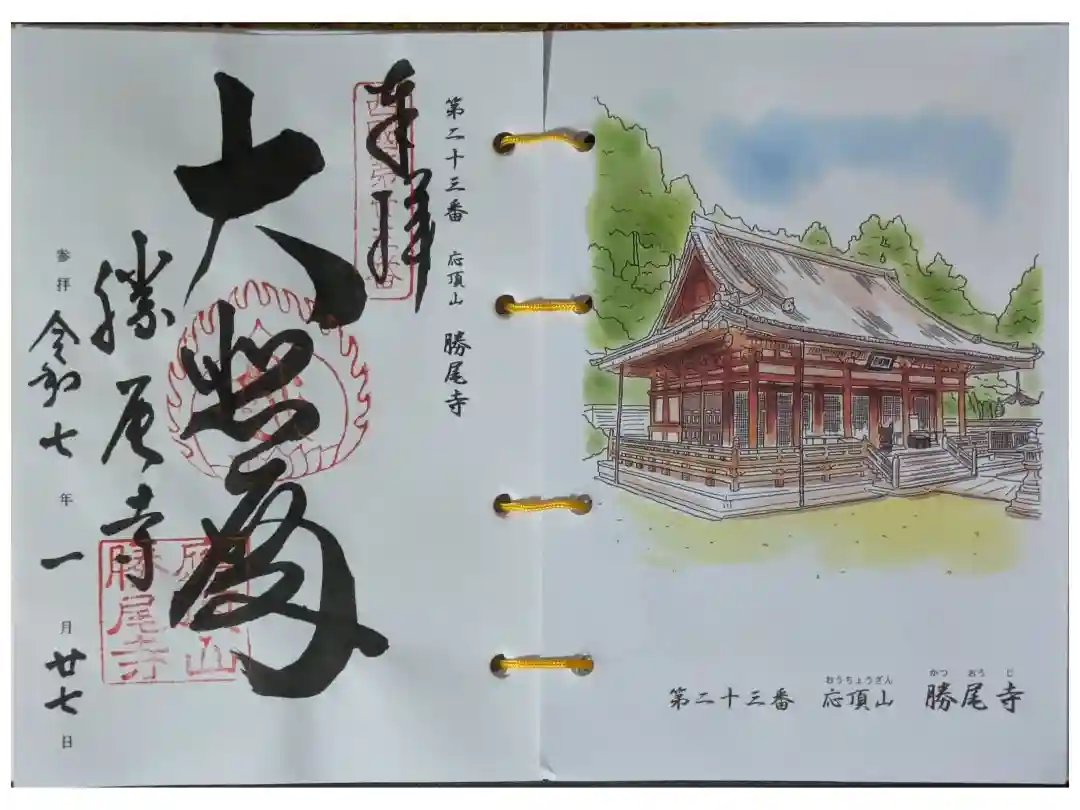 おうちょうざん かつ おう じ
第二十三番 応頂山 勝尾寺
第二十三番 応頂山 勝尾寺
奉拝
大悲殿
勝尾寺
應頂山
勝尾寺
参拝 令和七年一月廿七日